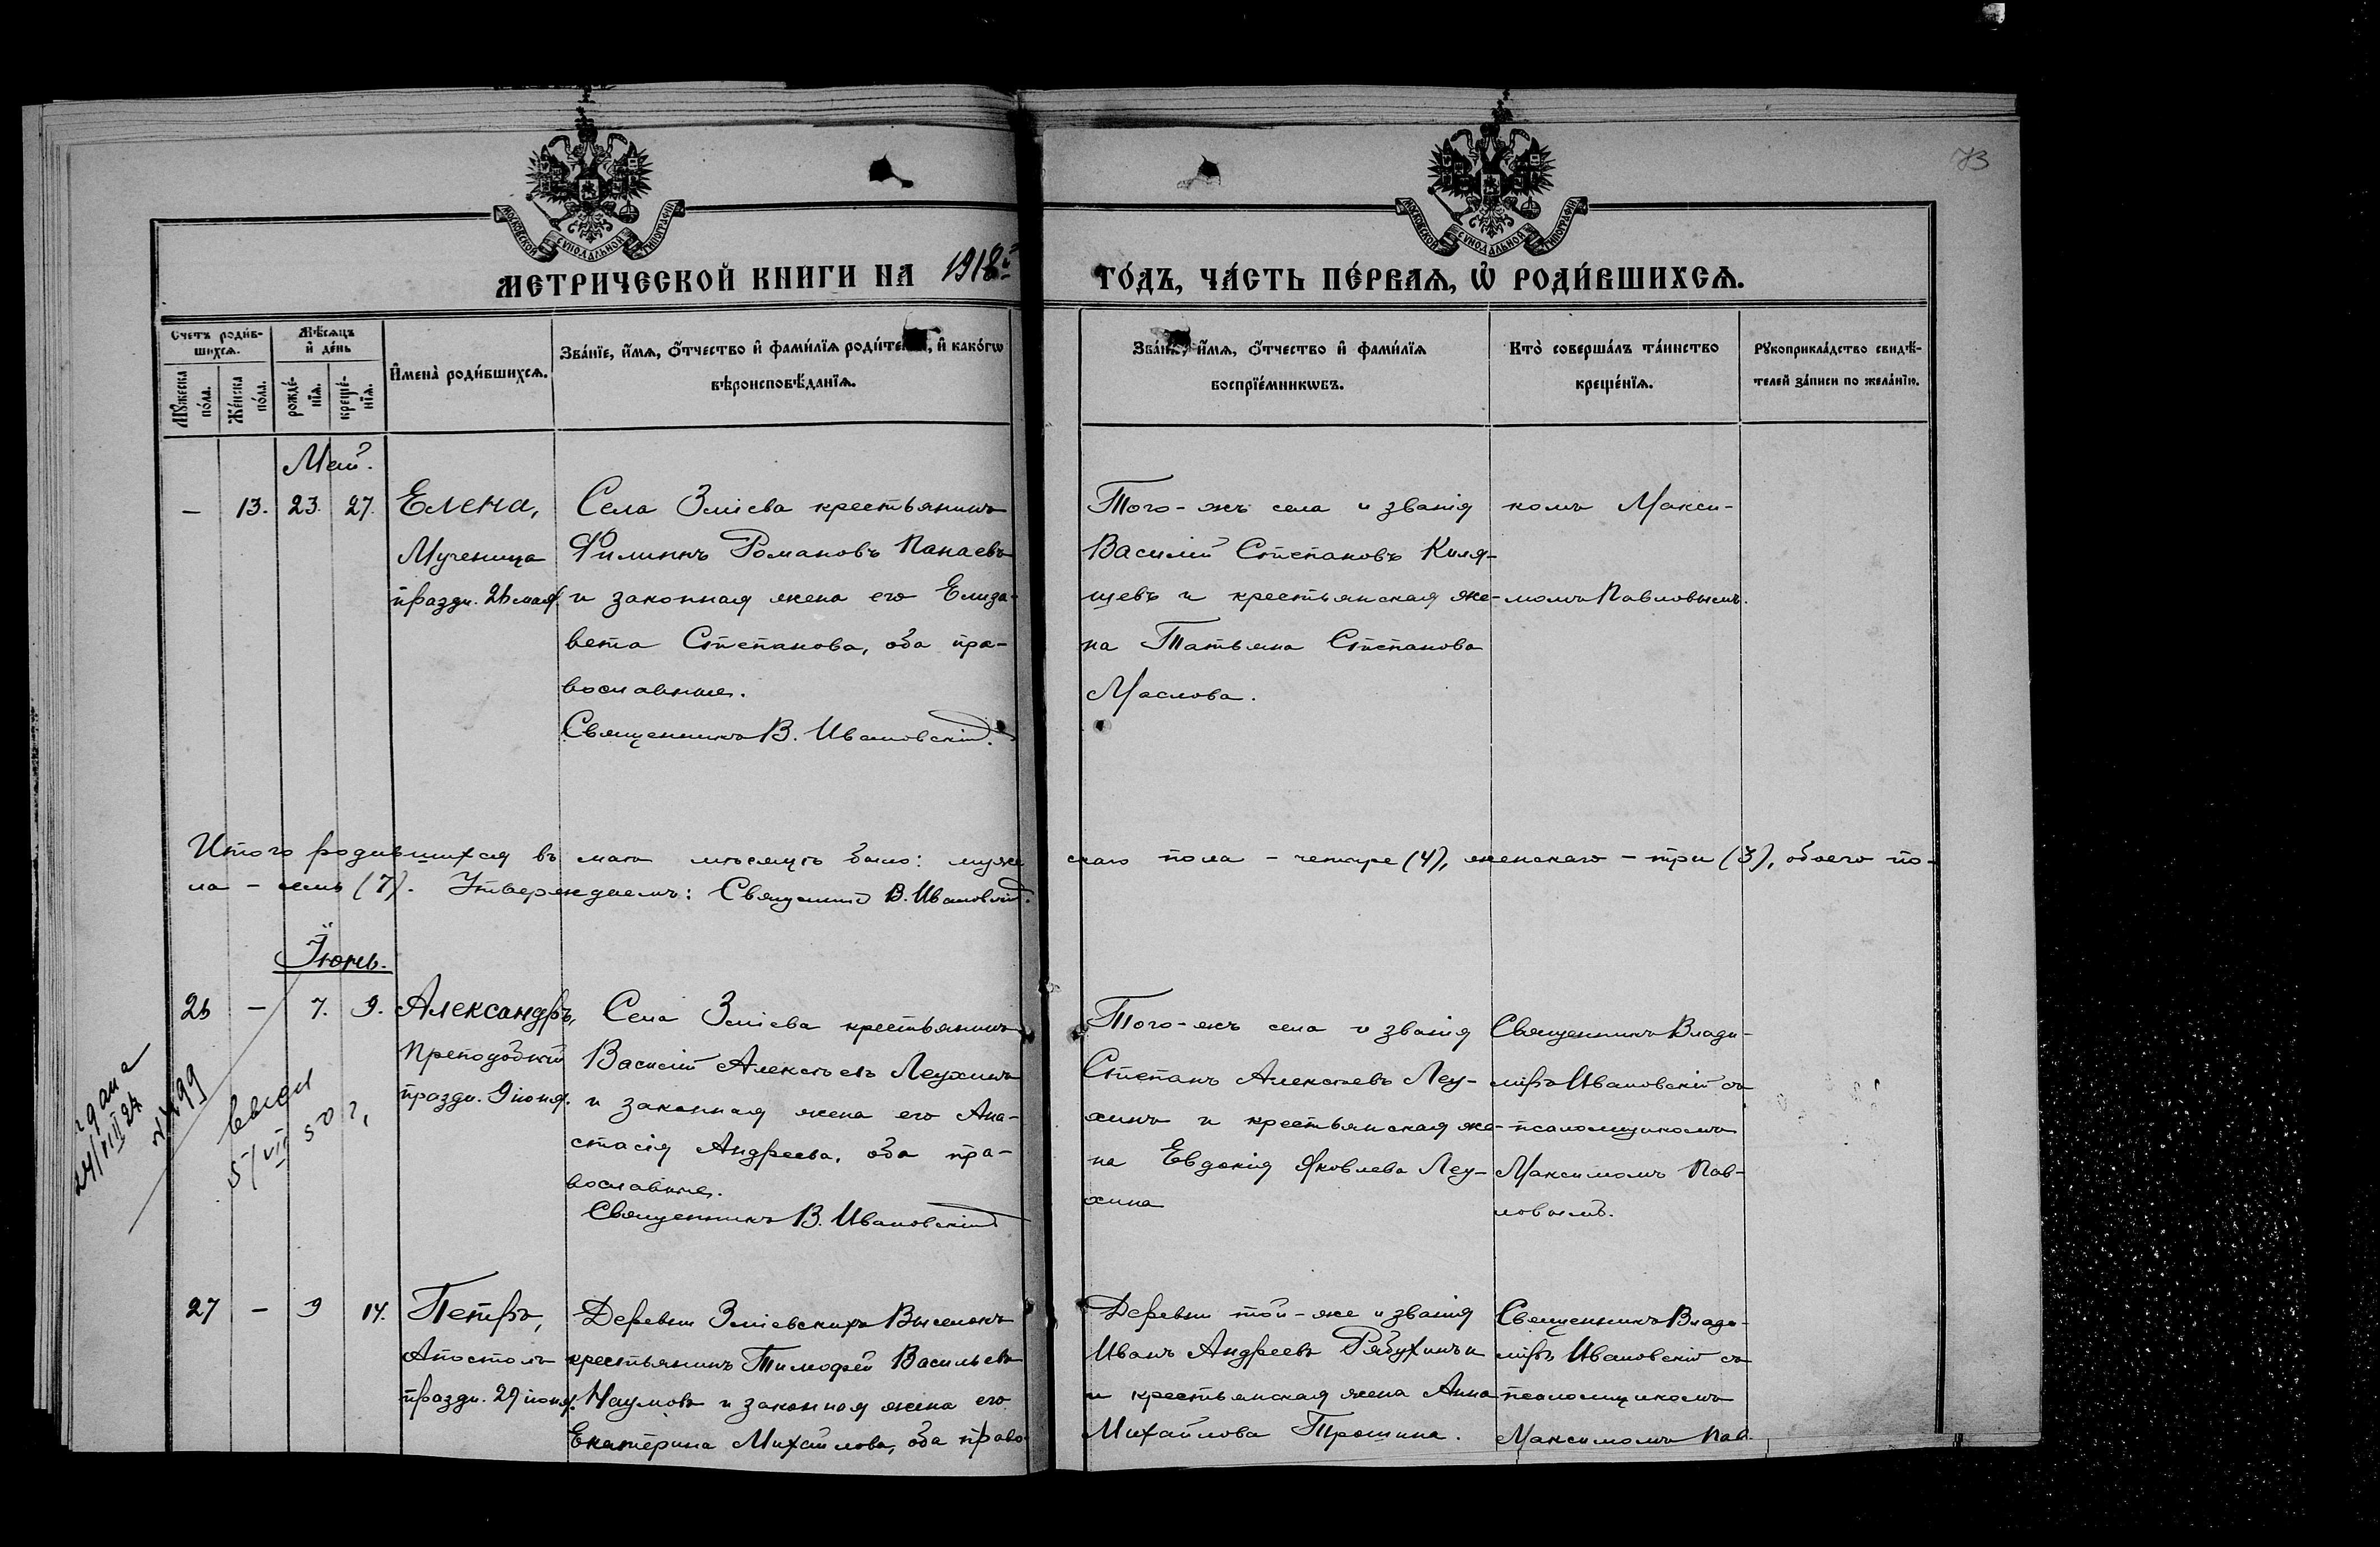 73
МОСКОВСКОЙ СѴНОДАЛЬНОЙ ТИПОГРАФІИ
МОСКОВСКОЙ СѴНОДАЛЬНОЙ ТИПОГРАФІИ
МЕТРИЧЕСКОЙ КНИГИ НА 1918й ГО́ДЪ, ЧА́СТЬ ПЕ́РВАѦ, Ѡ҆ РОДИ́ВШИХСѦ.
Счетъ роди́в-
шихсѧ.
Мѣ́сѧцъ
и҆ де́нь
Мꙋ́жеска по́ла.
Же́нска по́ла.
рожде́-
нїѧ.
креще́-
нїѧ.
И҆мена̀ роди́вшихсѧ.
Зва́нїе, и҆́мѧ, ѻ҆́тчество и҆ фами́лїѧ роди́телей, и҆ како́гѡ
вѣроисповѣ́данїѧ.
Зва́нїе, и҆́мѧ, ѻ҆́тчество и҆ фами́лїѧ
воспрїе́мникѡвъ.
Кто̀ соверша́лъ та́инство
креще́нїѧ.
Рꙋкоприкла́дство свидѣ́-
телей за́писи по жела́нїю.
Май.
— 13. 23. 27. Елена,
Мученица
праздн. 26 мая.
Села Зміева крестьянинъ
Филиппъ Романовъ Панаевъ
и законная жена его Елиза-
вета Степанова, оба пра-
вославные.
Священникъ В. Ивановскій.
Того-жъ села и званія
Василій Степановъ Киля-
щевъ и крестьянская же-
на Татьяна Степанова
Маслова.
комъ Макси-
момъ Павловымъ.
Итого родившихся въ маѣ мѣсяцѣ было: муже скаго пола - четыре (4), женскаго - три (3), обоего по-
ла - семь (7). Утверждаемъ: Священникъ В. Ивановскій.
Іюнь.
26 — 7. 9. Александръ,
Преподобный
праздн. 9 іюня.
Села Зміева крестьянинъ
Василій Алексѣевъ Леухинъ
и законная жена его Ана-
стасія Андреева, оба пра-
вославные.
Священникъ В. Ивановскій
Того-жъ села и званія
Степанъ Алексѣевъ Леу-
хинъ и крестьянская же-
на Евдокія Яковлева Леу-
хина
Священникъ Влади-
міръ Ивановскій съ
псаломщикомъ
Максимомъ Пав-
ловымъ.
24/VIII 24
№ 499
5/VIII 50 г.
27 — 9 14. Петръ,
Апостолъ
праздн. 29 іюня.
Деревни Зміевскихъ Выселокъ
крестьянинъ Тимофей Васильевъ
Наумовъ и законная жена его
Екатерина Михайлова, оба право-
Деревни той-же и званія
Иванъ Андреевъ Рябухинъ и
и крестьянская жена Анна
Михайлова Трошина.
Священникъ Влади-
міръ Ивановскій съ
псаломщикомъ
Максимомъ Пав.